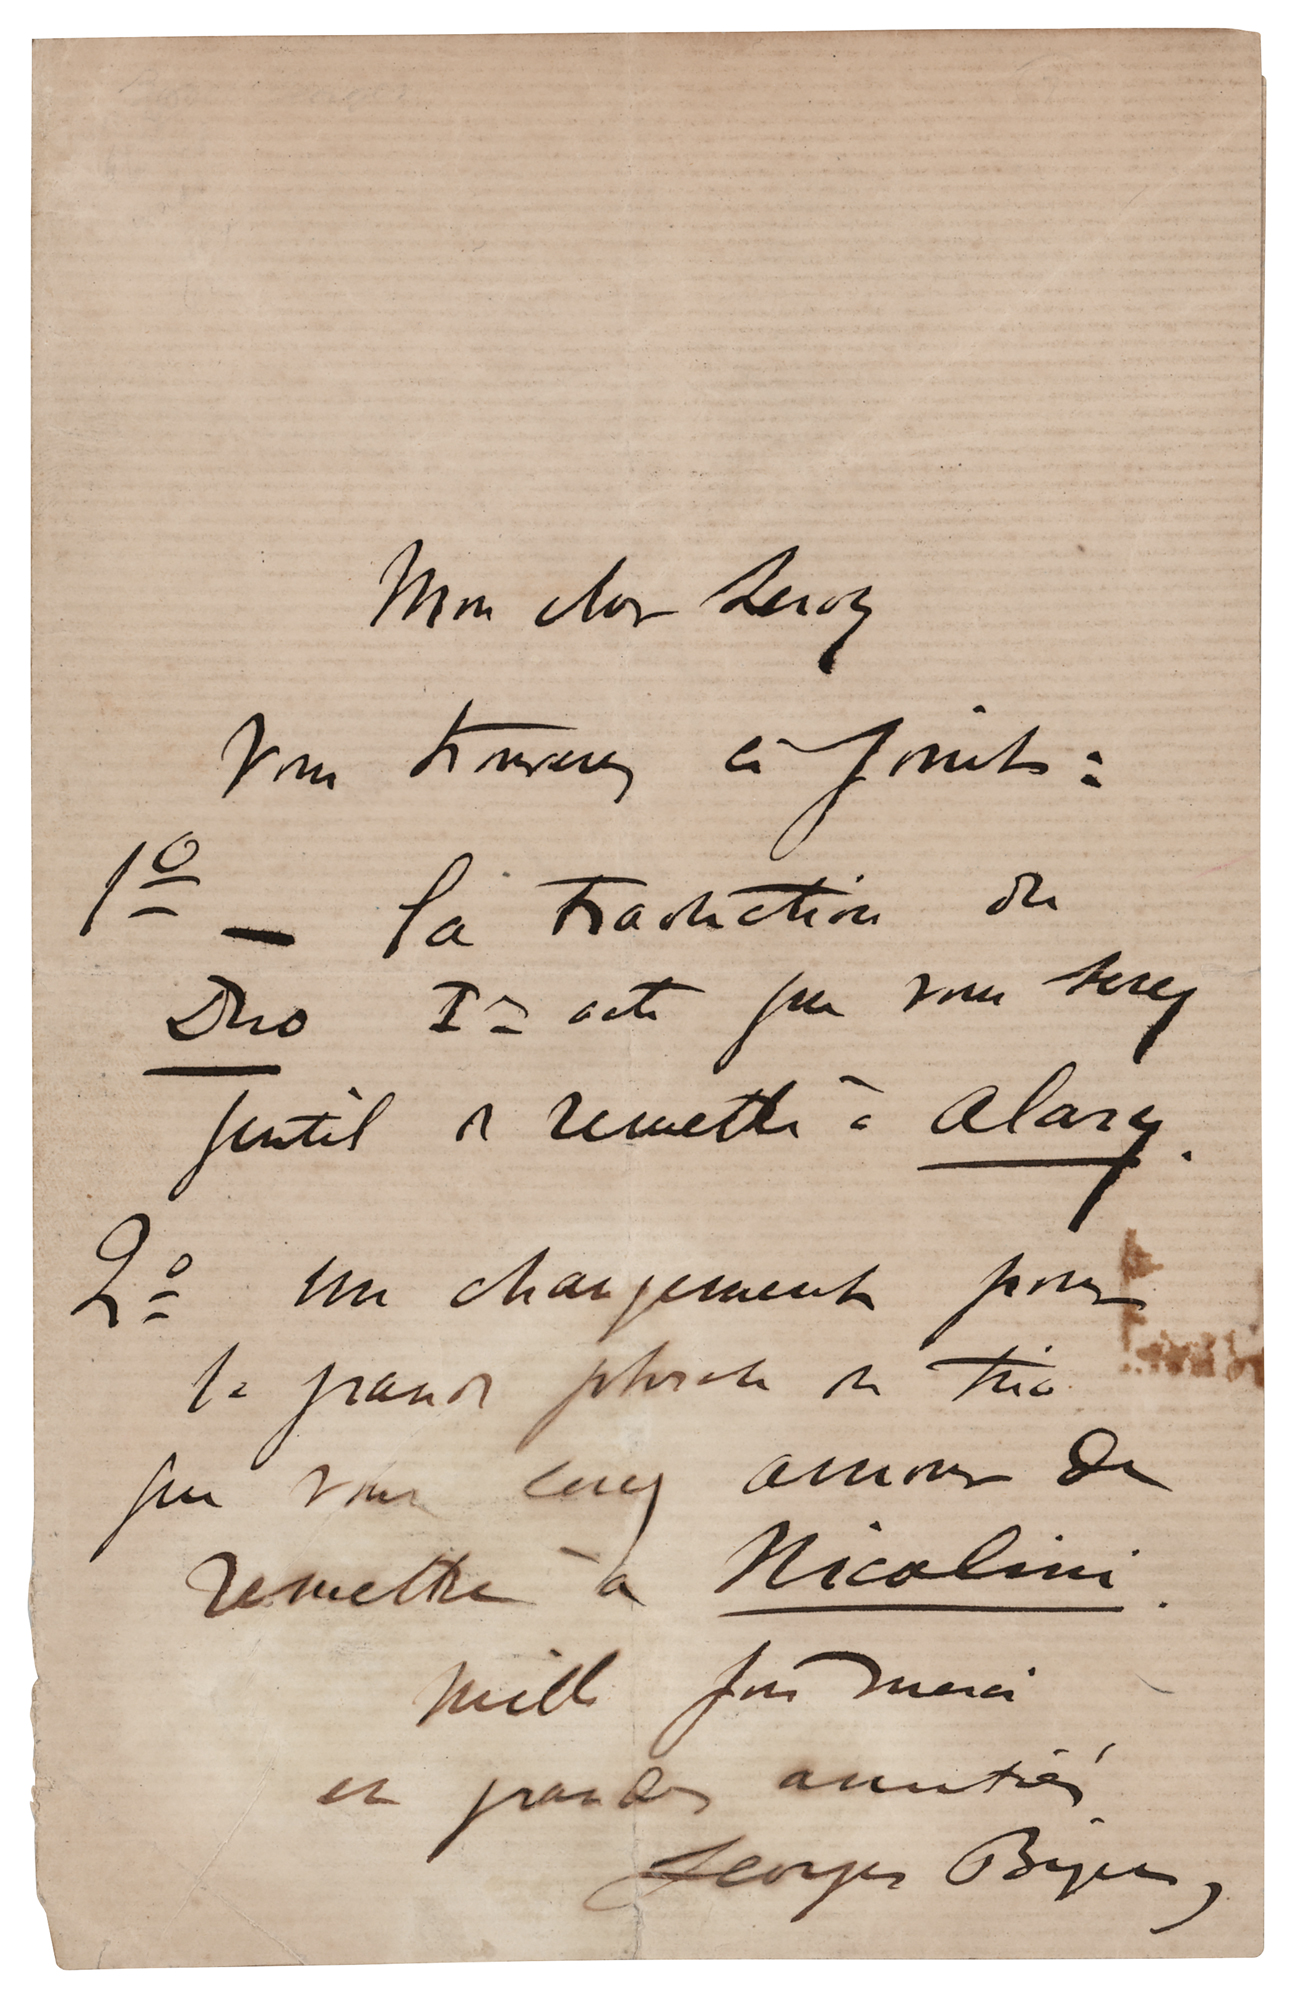 Mon cher Leroy
Vous trouverez ci-joint :
1º — la traduction du
Duo Ier acte que vous serez
gentil de remettre à Alary.
2º un changement pour
la grande phrase du trio
que vous serez amour de
remettre à Nicolini.
Mille fois merci
et grandes amitiés
Georges Bizet